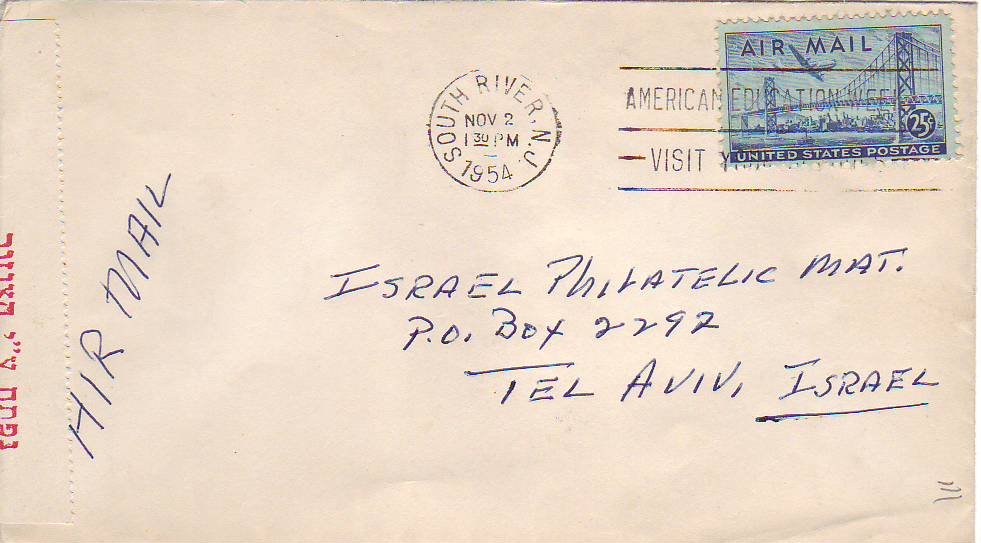 AIR MAIL
25¢
UNITED STATES POSTAGE
SOUTH RIVER, N.J.
NOV 2
1 30 PM
1954
AMERICAN EDUCATION WEEK
VISIT
AIR MAIL
ISRAEL PHILATELIC MAT.
P.O. BOX 2292
TEL AVIV, ISRAEL
נפתח ע"י הצנזורה